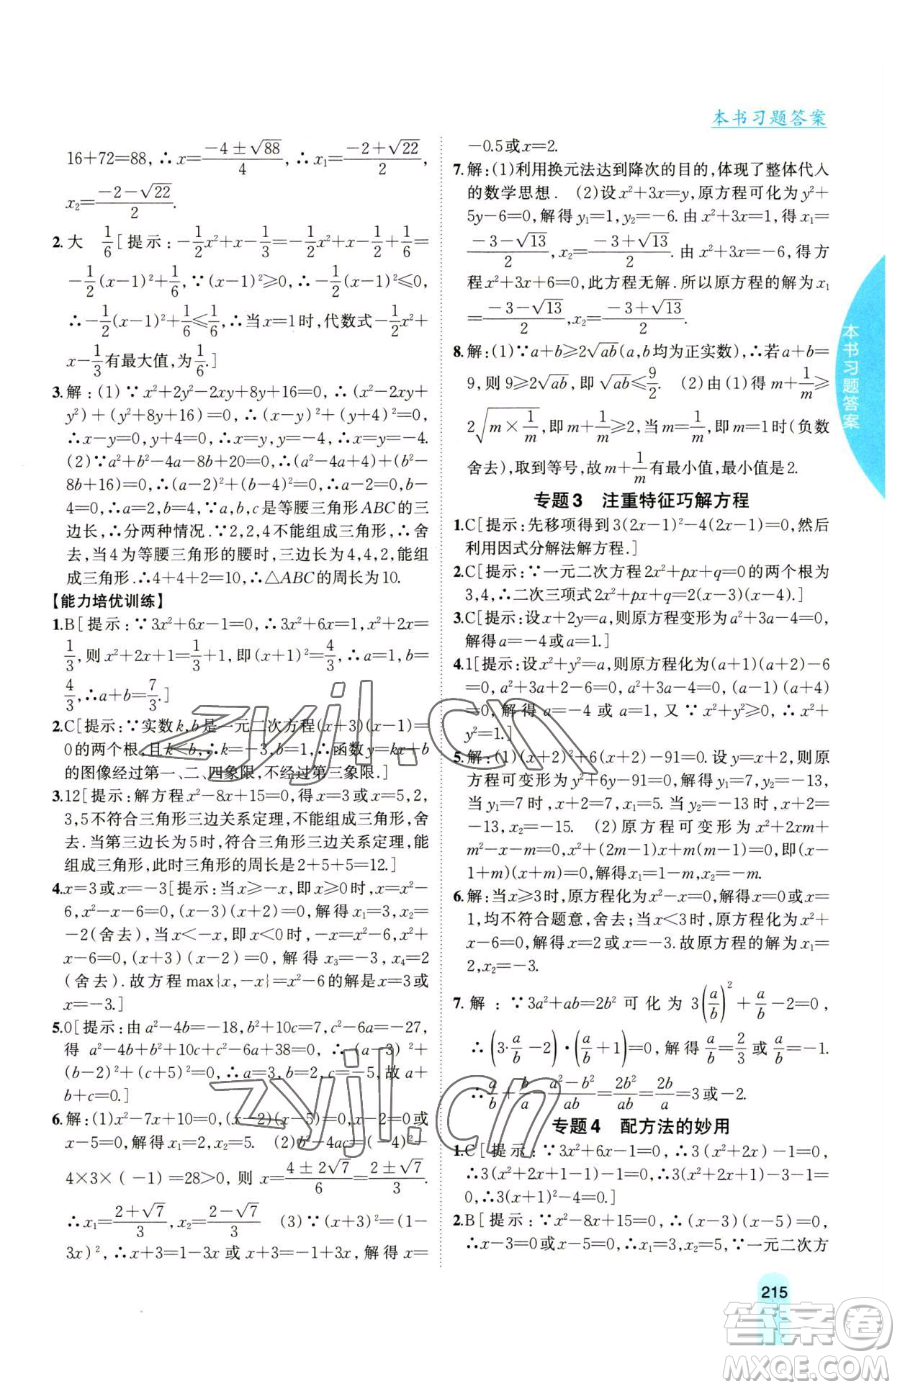 本书习题答案
16+72=88,∴x=(-4±√88)/4,∴x₁=(-2+√22)/2,
x₂=(-2-√22)/2.
2.大 1/6[提示:-1/2x²+x-1/3=-1/2x²+x-1/2+1/6=
-1/2(x-1)²+1/6,∵(x-1)²≥0,∴-1/2(x-1)²≤0,
∴-1/2(x-1)²+1/6≤1/6,∴当x=1时,代数式-1/2x²+
x-1/3有最大值,为1/6.]
3.解:(1)∵x²+2y²-2xy+8y+16=0,∴(x²-2xy+
y²)+(y²+8y+16)=0,∴(x-y)²+(y+4)²=0,
∴x-y=0,y+4=0,∴y=-4,x=-4,∴xy=16.
(2)∵a²+b²-4a-8b+20=0,∴a²-4a+4+(b²-
8b+16)=0,∴(a-2)²+(b-4)²=0,∴a-2=0,
b-4=0,∴a=2,b=4,∵c是等腰三角形ABC的三
边长,∴分两种情况:∵2,2,4不能组成三角形,∴舍
去,当4为等腰三角形的腰时,三边长为4,4,2,能组
成三角形.∴4+4+2=10,∴△ABC的周长为10.
【能力培优训练】
1.B[提示:∵3x²+6x-1=0,∴3x²+6x=1,x²+2x=
1/3,则x²+2x+1=1/3+1,∴(x+1)²=4/3,∴a=1,b=
4/3,∴a+b=7/3.]
2.C[提示:∵实数k,b是一元二次方程(x+3)(x-1)=
0的两个根,且k<b,∴k=-3,b=1,∴函数y=kx+b
的图像经过第一、二、四象限,不经过第三象限.]
3.12[提示:解方程x²-8x+15=0,得x=3或x=5,2,
3,5不符合三角形三边关系定理,不能组成三角形,舍
去.当第三边长为5时,符合三角形三边关系定理,能
组成三角形,此时三角形的周长是2+5+5=12.]
4.x=3或x=-3[提示:当x≥-x,即x≥0时,x=x²-
6,x²-x-6=0,(x-3)(x+2)=0,解得x₁=3,x₂=
-2(舍去),当x<-x,即x<0时,-x=x²-6,x²+
x-6=0,(x+3)(x-2)=0,解得x₃=-3,x₄=2
(舍去).故方程max{x,-x}=x²-6的解是x=3或
x=-3.]
5.0[提示:由a²-4b=-18,b²+10c=7,c²-6a=-27,
得a²-4b+b²+10c+c²-6a+38=0,∴(a-3)²+
(b-2)²+(c+5)²=0,∴a=3,b=2,c=-5,故a+
b+c=0.]
6.解:(1)x²-7x+10=0,(x-2)(x-5)=0,x-2=0或
x-5=0,解得x₁=2,x₂=5. (2)b²-4ac=(-4)²-
4×3×(-1)=28>0,则x=(4±2√7)/6=(2±√7)/3.
∴x₁=(2+√7)/3,x₂=(2-√7)/3. (3)∵(x+3)²=(1-
3x)²,∴x+3=1-3x或x+3=-1+3x,解得x=
-0.5或x=2.
7.解:(1)利用换元法达到降次的目的,体现了整体代入
的数学思想. (2)设x²+3x=y,原方程可化为y²+
5y-6=0,解得y₁=1,y₂=-6.由x²+3x=1,得x₁=
(-3-√13)/2,x₂=(-3+√13)/2.由x²+3x=-6,得方
程x²+3x+6=0,此方程无解.所以原方程的解为x₁
=(-3-√13)/2,x₂=(-3+√13)/2.
8.解:(1)∵a+b≥2√ab(a,b均为正实数),∴若a+b=
9,则9≥2√ab,即√ab≤9/2. (2)由(1)得m+1/m≥
2√(m×1/m),即m+1/m≥2,当m=1/m时,即m=1时(负数
舍去),取到等号,故m+1/m有最小值,最小值是2.
专题3 注重特征巧解方程
1.C[提示:先移项得到3(2x-1)²-4(2x-1)=0,然后
利用因式分解法解方程.]
2.C[提示:∵一元二次方程2x²+px+q=0的两个根为
3,4,∴二次三项式2x²+px+q=2(x-3)(x-4).]
3.C[提示:设x+2y=a,则原方程变形为a²+3a-4=0,
解得a=-4或a=1.]
4.1[提示:设x²+y²=a,则原方程化为(a+1)(a+2)-6
=0,a²+3a+2-6=0,a²+3a-4=0,(a+4)(a-1)
=0,解得a=-4或a=1,又∵x²+y²≥0,∴x²+
y²=1.]
5.解:(1)(x+2)²+6(x+2)-91=0.设x+2=y,则原
方程可变形为y²+6y-91=0,解得y₁=7,y₂=-13,
当y₁=7时,x+2=7,x₁=5.当y₂=-13时,x+2
=-13,x₂=-15. (2)原方程可变形为x²+2xm+
m²-x-m=0,(x+m)²-(x+m)=0,即(x+m)(x-
1+m)=0,解得x₁=1-m,x₂=-m.
6.解:当x≥3时,原方程化为x²-x=0,解得x=0或x=
1,均不符合题意,舍去;当x<3时,原方程化为x²+
x-6=0,解得x=2或x=-3.故原方程的解为x₁=
2,x₂=-3.
7.解:∵3a²+ab=2b²可化为3(a/b)²+a/b-2=0,
∴(3·a/b-2)·(a/b+1)=0,解得a/b=2/3或a/b=-1.
∴a/b+b/a=(a²+b²)/ab=2b²/ab=2b/a=3或-2.
专题4 配方法的妙用
1.C[提示:∵3x²+6x-1=0,∴3(x²+2x)-1=0,
∴3(x²+2x+1-1)-1=0,∴3(x²+2x+1)-3-1
=0,∴3(x+1)²-4=0.]
2.B[提示:∵x²-8x+15=0,∴(x-3)(x-5)=0,
∴x-3=0或x-5=0,∴x₁=3,x₂=5,∵一元二次方
本书习题答案
215
zyjl.cn
zyjl.cn
答案圈
MXQE.COM